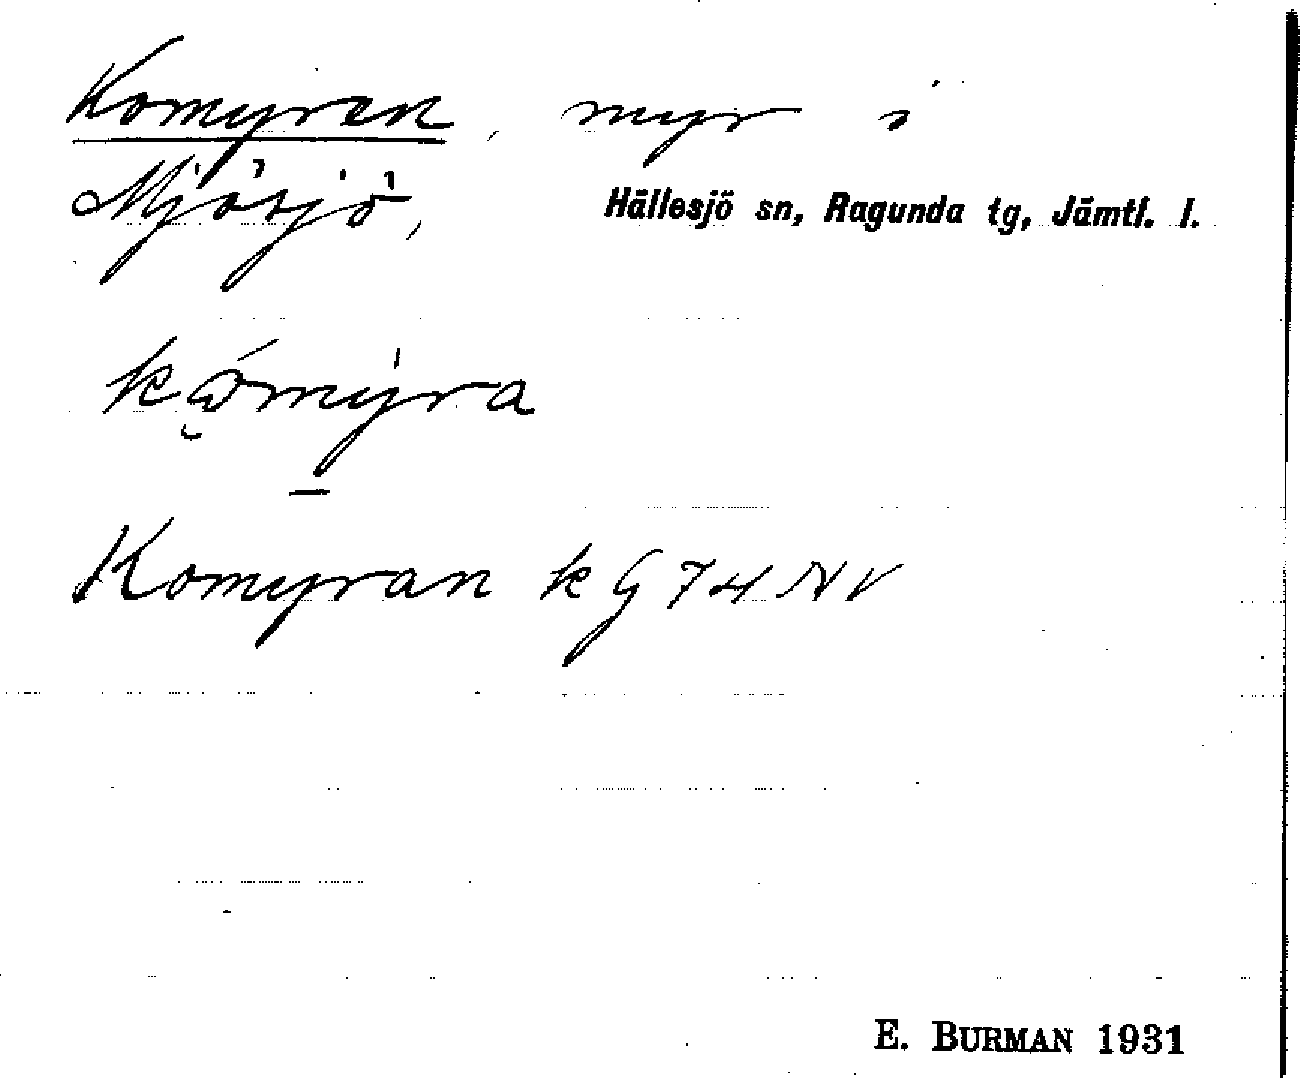 Komyren, myr i
Mjösjö, Hällesjö sn, Ragunda tg, Jämtl. l.
Komyran k G 74 NV
E. BURMAN 1931